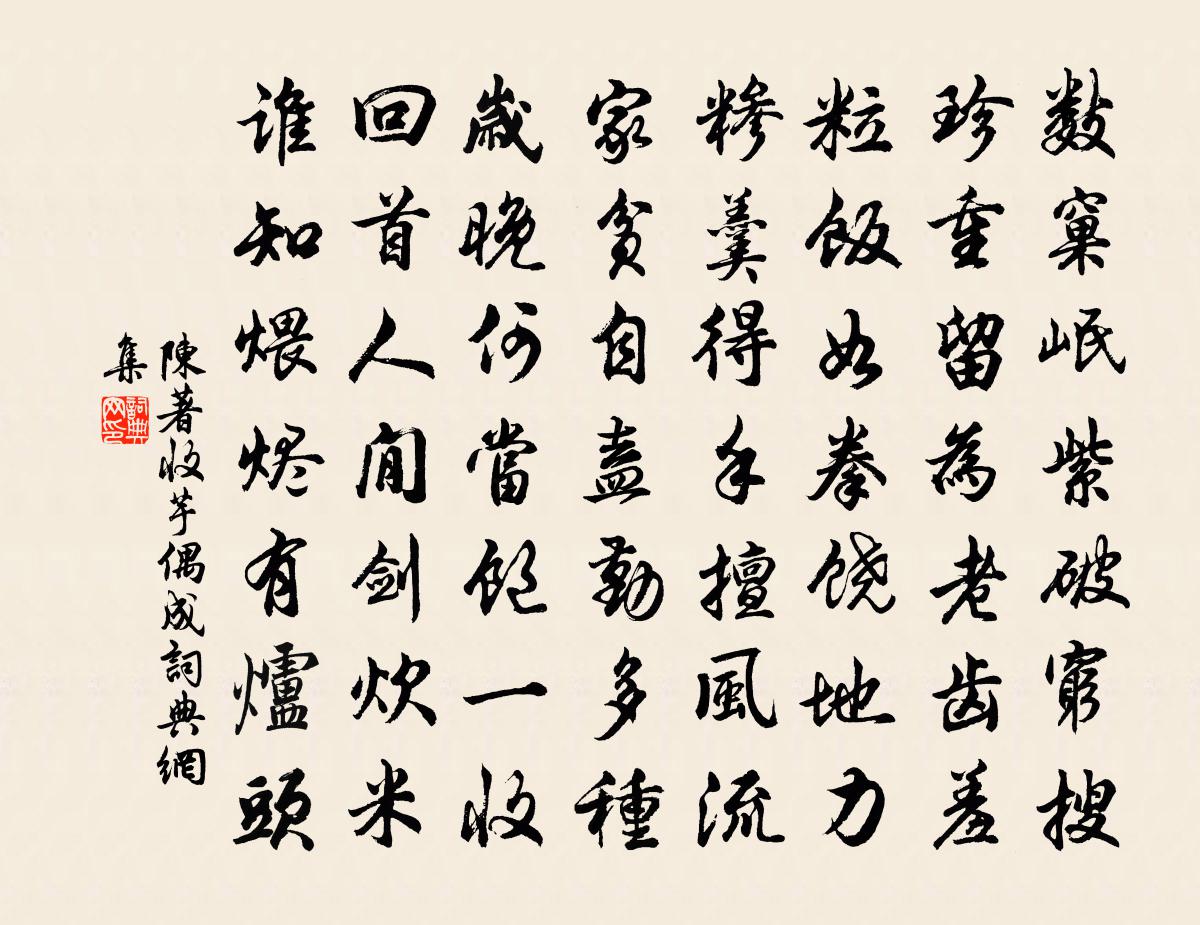 数窠岷紫破窮搜
珍重留為老齿羞
粒飯如拳饶地力
糝羹得手擅風流
家貧自盖勤多種
歲晚何當飽一收
回首人間劍炊米
谁知煨烬有爐頭
陳著收芋偶成詞典網
集
詞典网印